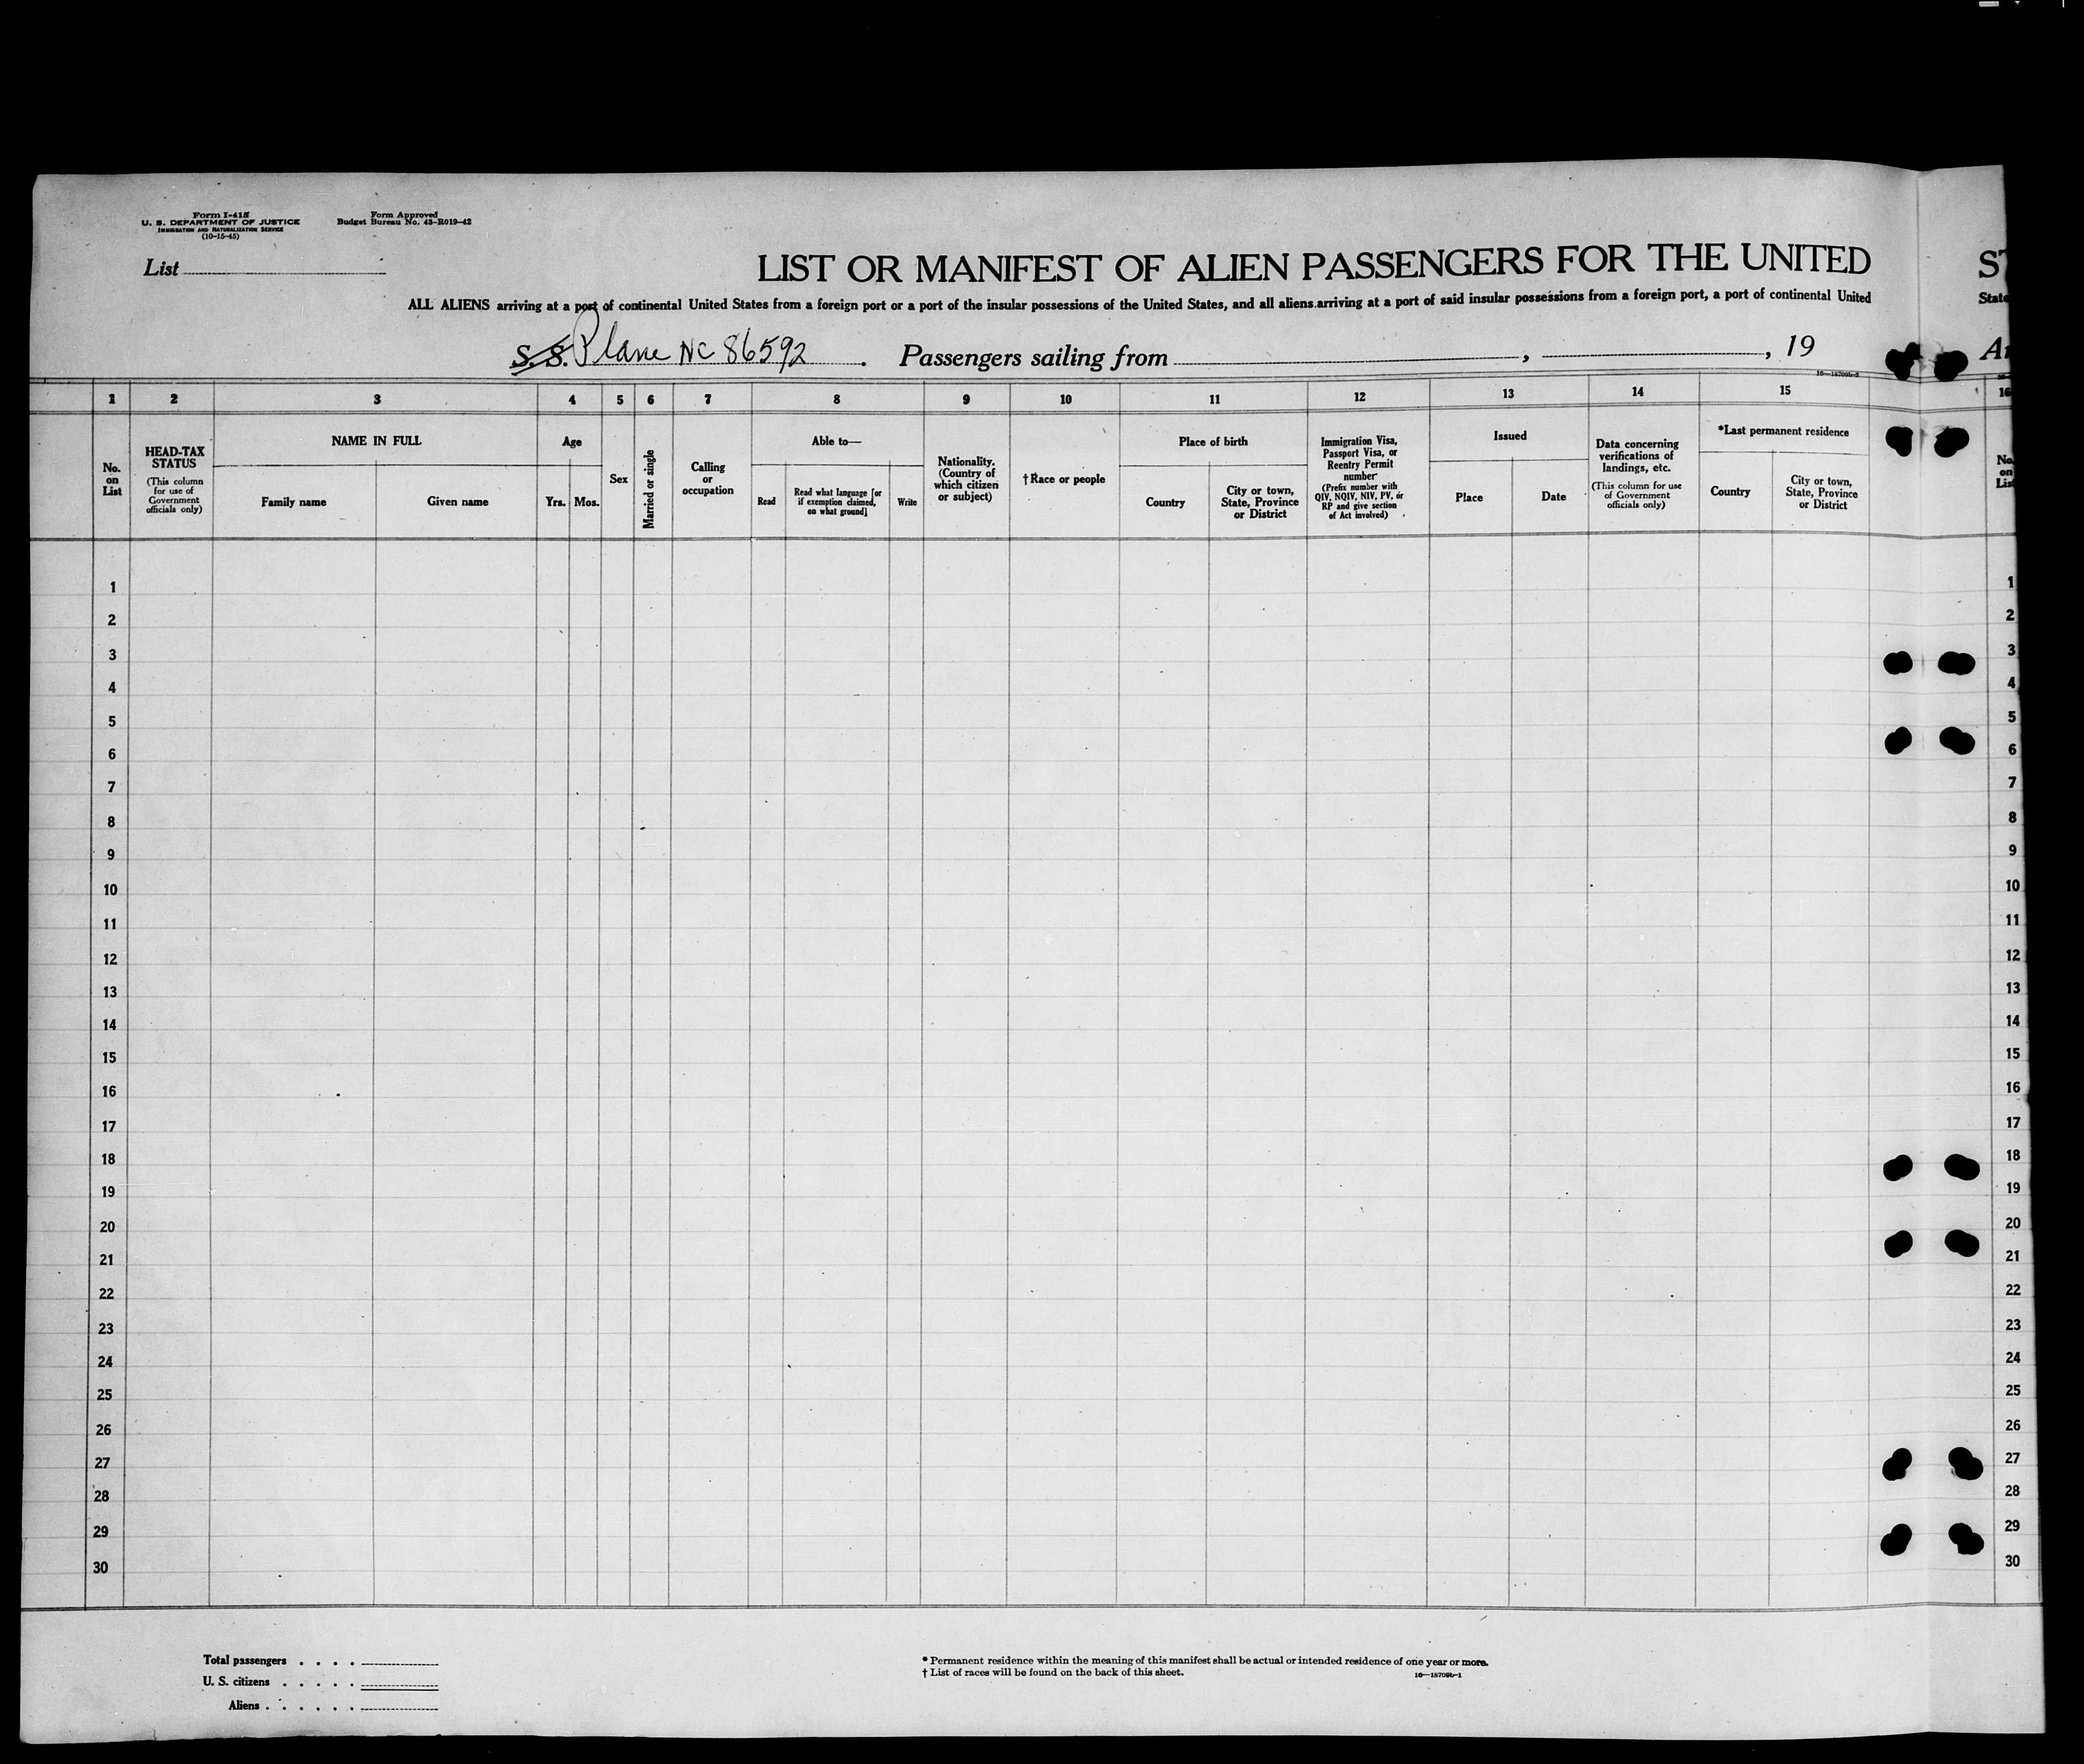 Form I-415
U. S. DEPARTMENT OF JUSTICE
IMMIGRATION AND NATURALIZATION SERVICE
(10-15-45)
Form Approved
Budget Bureau No. 43-R019-42
List
LIST OR MANIFEST OF ALIEN PASSENGERS FOR THE UNITED
ST
ALL ALIENS arriving at a port of continental United States from a foreign port or a port of the insular possessions of the United States, and all aliens arriving at a port of said insular possessions from a foreign port, a port of continental United
State
S. S. Plane NC 86592 . Passengers sailing from , , 19
16—18709b-2
1 2 3 4 5 6 7 8 9 10 11 12 13 14 15 16
No. on List
HEAD-TAX STATUS
(This column for use of Government officials only)
NAME IN FULL
Family name
Given name
Age
Yrs.
Mos.
Sex
Married or single
Calling or occupation
Able to—
Read
Read what language [or if exemption claimed, on what ground]
Write
Nationality. (Country of which citizen or subject)
†Race or people
Place of birth
Country
City or town, State, Province or District
Immigration Visa, Passport Visa, or Reentry Permit number
(Prefix number with QIV, NQIV, NIV, PV, or RP and give section of Act involved)
Issued
Place
Date
Data concerning verifications of landings, etc.
(This column for use of Government officials only)
*Last permanent residence
Country
City or town, State, Province or District
No. on List
1 1
2 2
3 3
4 4
5 5
6 6
7 7
8 8
9 9
10 10
11 11
12 12
13 13
14 14
15 15
16 16
17 17
18 18
19 19
20 20
21 21
22 22
23 23
24 24
25 25
26 26
27 27
28 28
29 29
30 30
Total passengers . . . .
U. S. citizens . . . . .
Aliens . . . . . .
* Permanent residence within the meaning of this manifest shall be actual or intended residence of one year or more.
† List of races will be found on the back of this sheet.
16—18709b-1